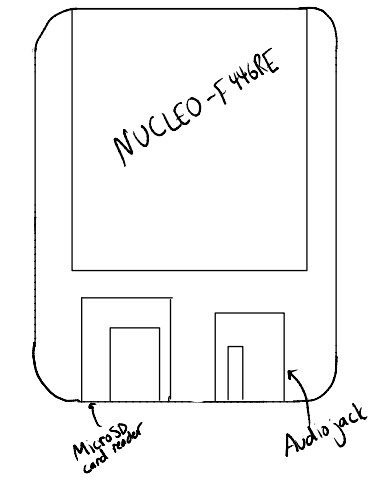 NUCLEO-F446RE
MicroSD
card reader
Audio jack